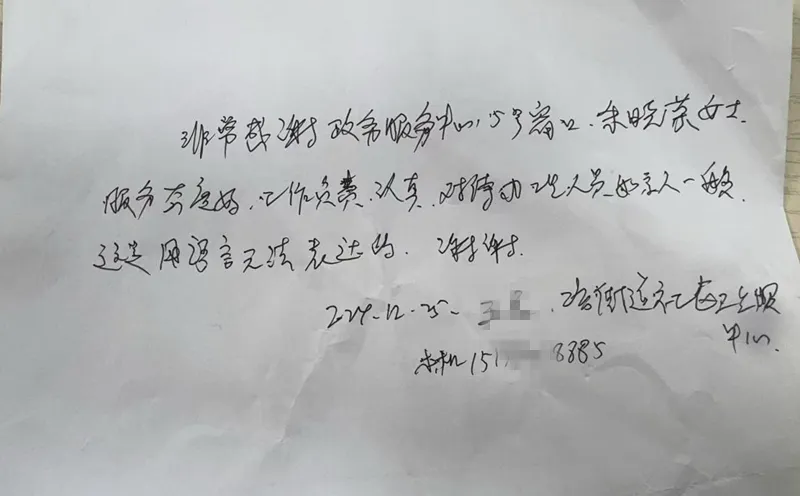 非常感谢政务服务中心15号窗口、朱晓荣女士.
服务态度好、工作负责、认真、对待办理人员如亲人一般.
这是用语言无法表达的. 谢谢.
2024.12.25 街道社区卫生服
中心.
手机151 8885